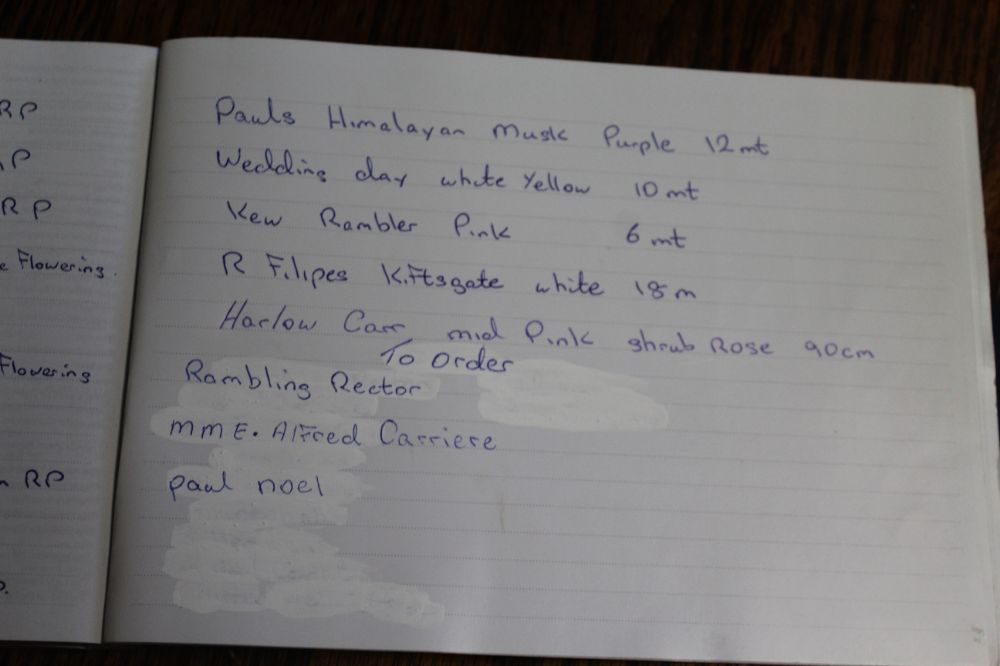 RP
RP
e Flowering.
Flowering
RP
Pauls Himalayan Musk Purple 12 mt
Wedding day white Yellow 10 mt
Kew Rambler Pink 6 mt
R Filipes Kiftsgate white 18 m
Harlow Carr mid Pink shrub Rose 90cm
To Order
Rambling Rector
MME. Alfred Carriere
paul noel